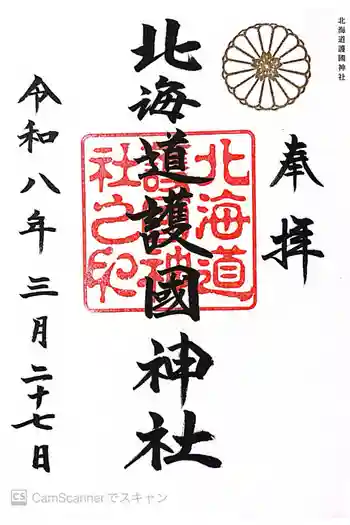 北海道護國神社
奉拝
北海道護國神社
北海道
護國神
社之印
令和八年三月二十七日
CS CamScanner でスキャン